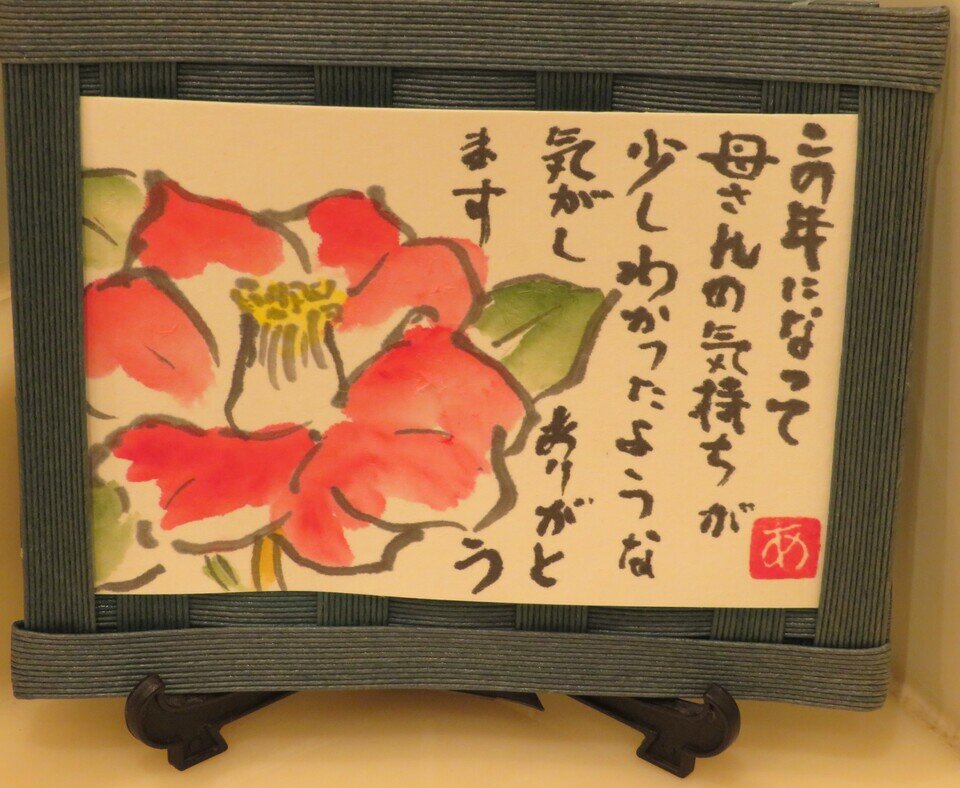 この年になって
母さんの気持ちが
少しわかったような
気がし
ます
ありがと
う
あ